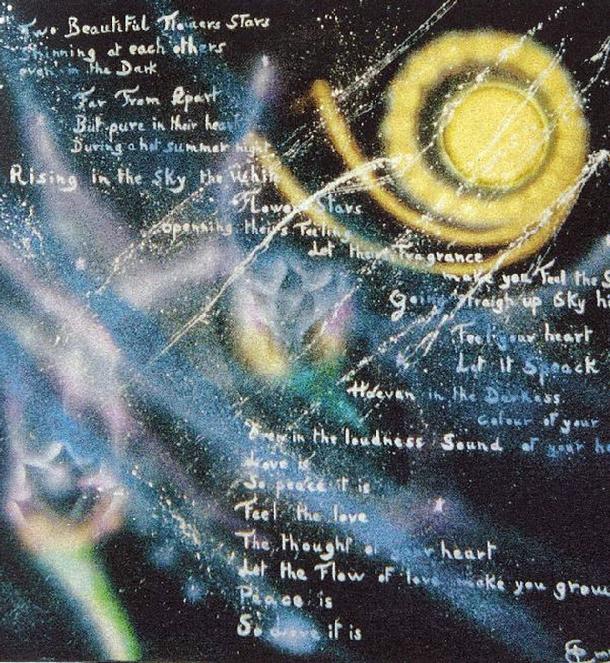 Two Beautiful Flowers Stars
Shinning at each others
even in the Dark
Far From Apart
But pure in their heart
During a hot summer night
Rising in the Sky the White
Flowers Stars
openning theirs Feeling
Let their Fragrance
make you Feel the
Going straigh up Sky
Feel your heart
Let It Speack
Haeven in the Darkness
colour of your
Even in the loudness Sound of your
Love is
So peace it is
Feel the love
The thought of your heart
Let the Flow of love make you grow
Peace is
So love it is